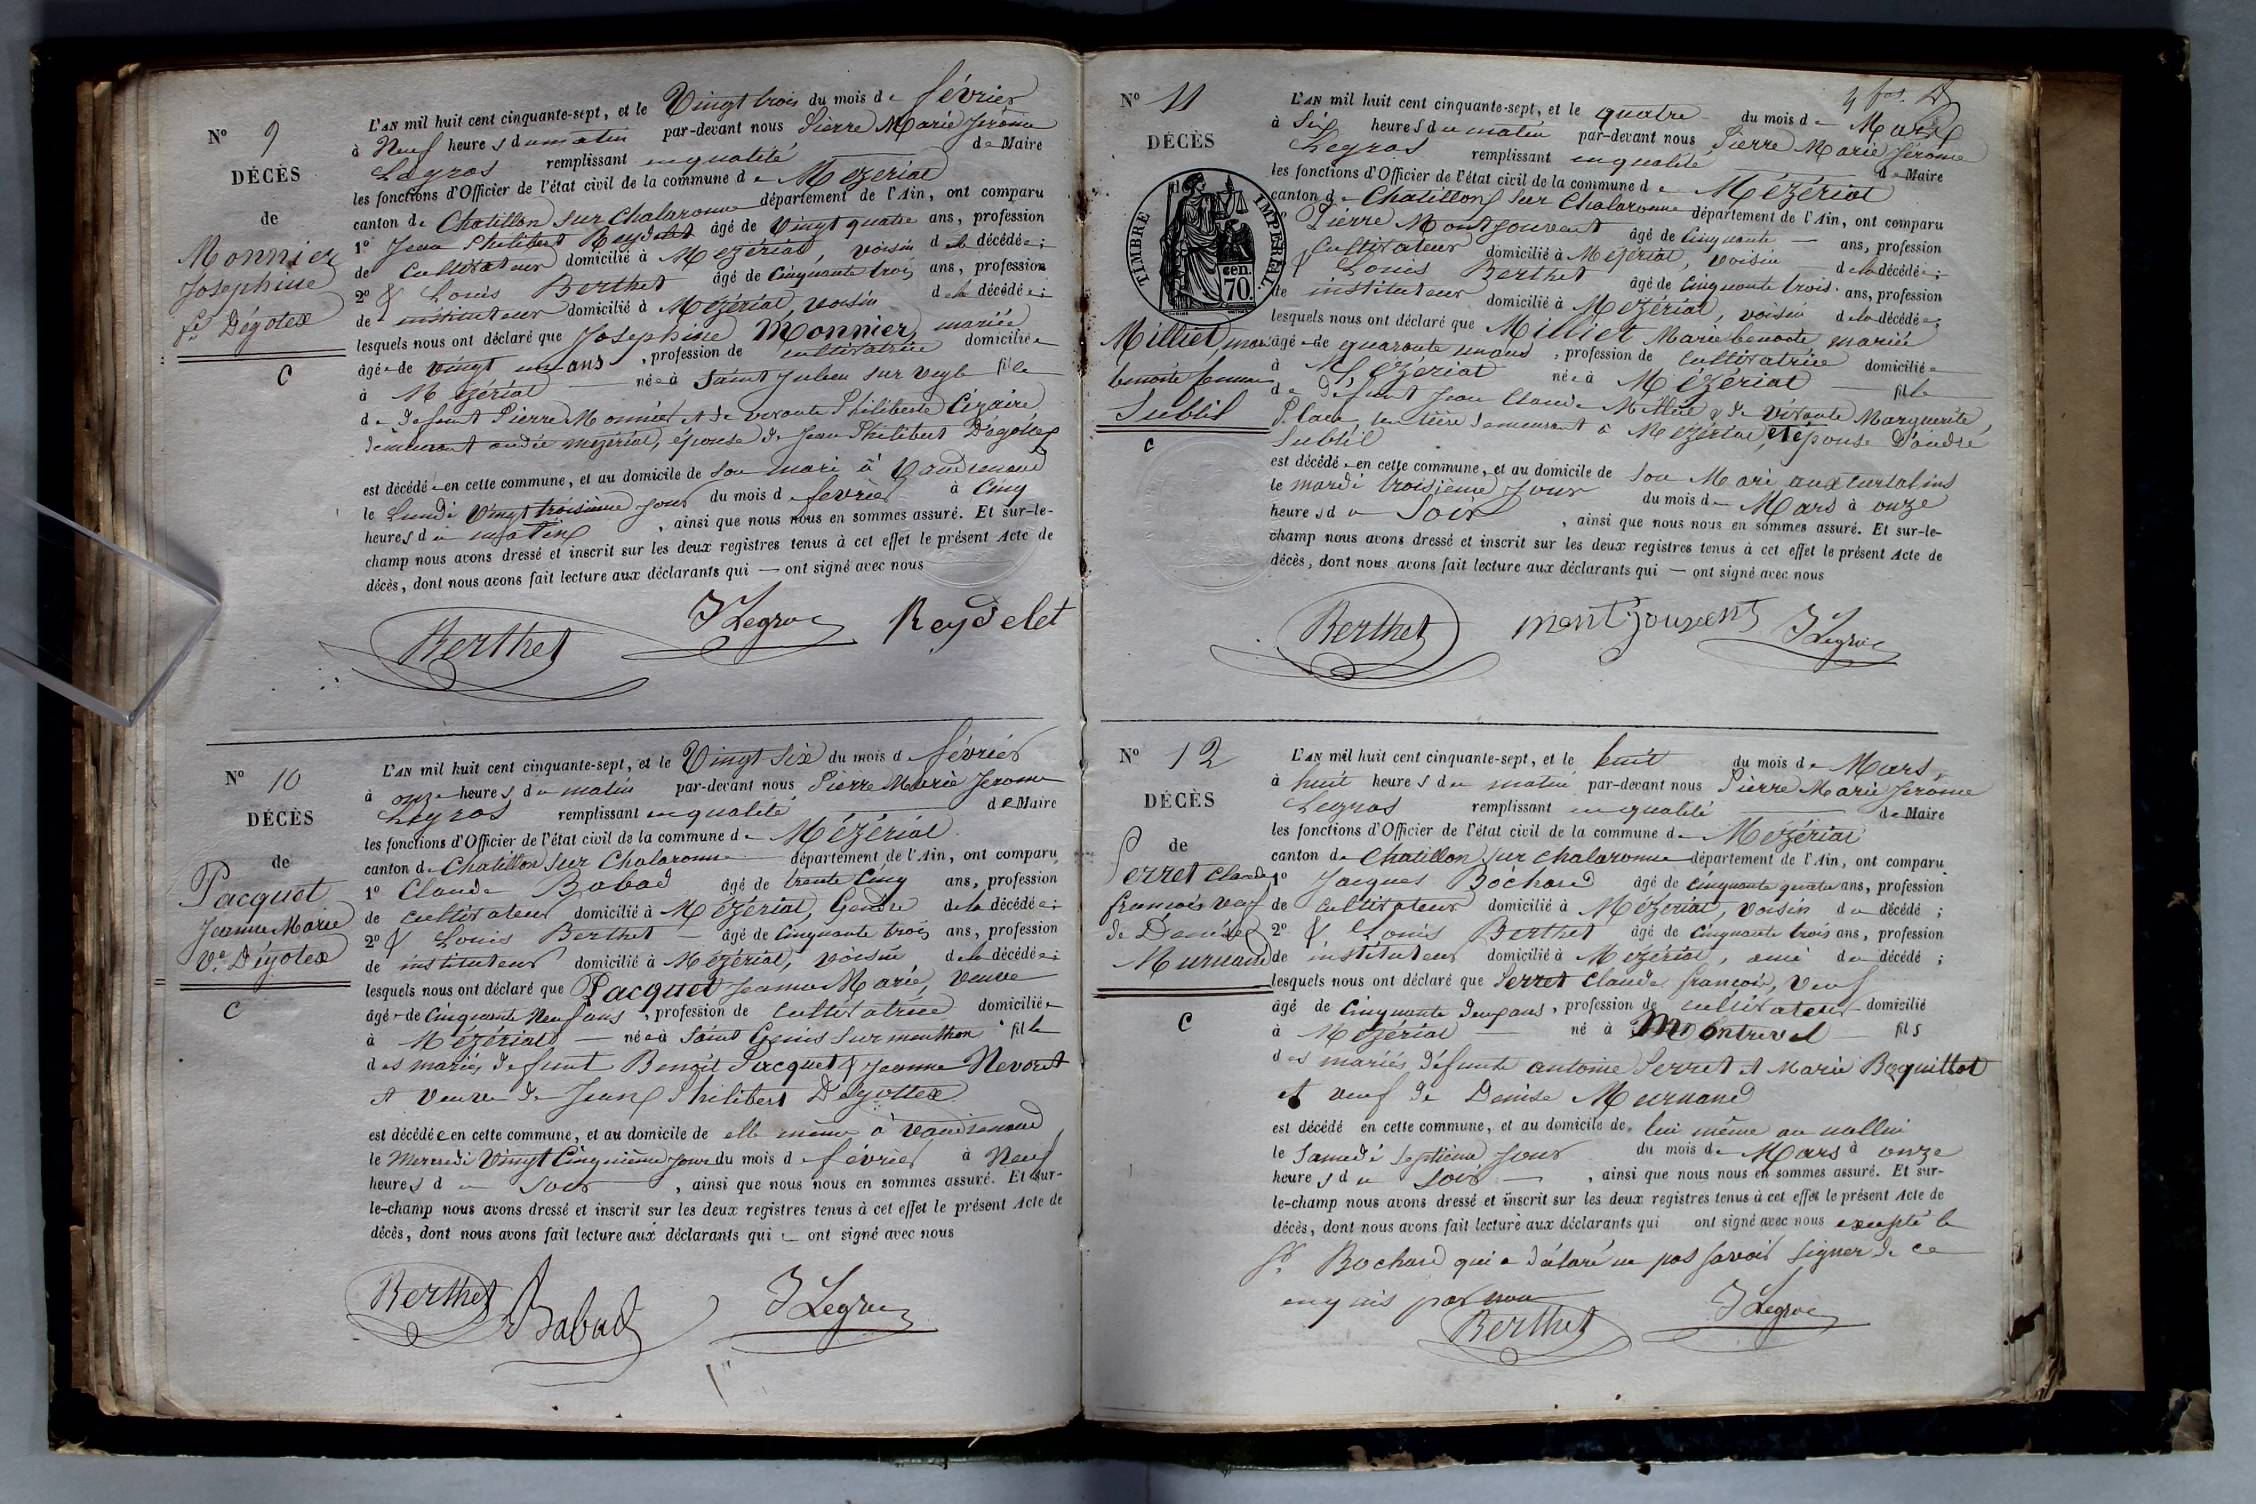 N° 9
DÉCÈS
de
Monnier
Josephine
fe Dégotex
C
L'AN mil huit cent cinquante-sept, et le Vingt trois du mois de février
à Neuf heures du matin par-devant nous Pierre Marie Jérôme
Legros remplissant en qualité de Maire
les fonctions d'Officier de l'état civil de la commune de Mézériat
canton de Chatillon sur Chalaronne département de l'Ain, ont comparu
1° Jean Philibert Reydelet âgé de Vingt quatre ans, profession
de cultivateur domicilié à Mézériat, voisin de la décédée;
2° & Louis Berthet âgé de Cinquante trois ans, profession
de instituteur domicilié à Mézériat, voisin de la décédée;
lesquels nous ont déclaré que Josephine Monnier, mariée
âgée de vingt un ans, profession de cultivatrice domiciliée
à Mézériat née à Saint Julien sur Veyle fille
de défunt Pierre Monnier et de vivante Philiberte Cizaire
demeurant audit Mézériat, épouse de Jean Philibert Dégotex
est décédée en cette commune, et au domicile de son mari à Vaudrenand
le Lundi Vingt troisième jour du mois de février à Cinq
heures du matin, ainsi que nous nous en sommes assuré. Et sur-le-
champ nous avons dressé et inscrit sur les deux registres tenus à cet effet le présent Acte de
décès, dont nous avons fait lecture aux déclarants qui — ont signé avec nous
Berthet J Legros Reydelet
N° 10
DÉCÈS
de
Pacquet
Jeanne Marie
Ve Dégotex
C
L'AN mil huit cent cinquante-sept, et le Vingt Six du mois de février
à onze heures du matin par-devant nous Pierre Marie Jerome
Legros remplissant en qualité de Maire
les fonctions d'Officier de l'état civil de la commune de Mézériat
canton de Chatillon sur Chalaronne département de l'Ain, ont comparu
1° Claude Babad âgé de trente Cinq ans, profession
de cultivateur domicilié à Mézériat, Gendre de la décédée;
2° & Louis Berthet — âgé de Cinquante trois ans, profession
de instituteur domicilié à Mézériat, voisin de la décédée;
lesquels nous ont déclaré que Pacquet Jeanne Marie, Veuve
âgée de Cinquante Neuf ans, profession de cultivatrice domiciliée
à Mézériat — née à Saint Genis sur menthon fille
des mariés défunt Benoit Pacquet & Jeanne Nevoret
et veuve de Jean Philibert Dégottex
est décédée en cette commune, et au domicile de elle même à Vaudrenand
le Mercredi Vingt Cinquième jour du mois de février à Neuf
heures du soir, ainsi que nous nous en sommes assuré. Et sur-
le-champ nous avons dressé et inscrit sur les deux registres tenus à cet effet le présent Acte de
décès, dont nous avons fait lecture aux déclarants qui — ont signé avec nous
Berthet Babad J Legros
N° 11
DÉCÈS
de
TIMBRE IMPÉRIAL.
cen.
70
Milliet, marie
benoite femme
Subtil
C
L'AN mil huit cent cinquante-sept, et le quatre du mois de Mars
à Six heures du matin par-devant nous Pierre Marie Jérôme
Legros remplissant en qualité de Maire
les fonctions d'Officier de l'état civil de la commune de Mézériat
canton de Chatillon sur Chalaronne département de l'Ain, ont comparu
Pierre Montjouvent âgé de Cinquante — ans, profession
Cultivateur domicilié à Mézériat, voisin de la décédée;
& Louis Berthet âgé de Cinquante trois ans, profession
de instituteur domicilié à Mézériat, voisin de la décédée;
lesquels nous ont déclaré que Milliet Marie benoite mariée
âgée de quarante un ans, profession de cultivatrice domiciliée
à Mézériat née à Mézériat fille
de défunt Jean Claude Milliet & de vivante Marguerite
demeurant à Mézériat, et épouse D'andré
Subtil
est décédée en cette commune, et au domicile de son Mari aux curtatins
le mardi troisième jour du mois de Mars à onze
heures du Soir, ainsi que nous nous en sommes assuré. Et sur-le-
champ nous avons dressé et inscrit sur les deux registres tenus à cet effet le présent Acte de
décès, dont nous avons fait lecture aux déclarants qui — ont signé avec nous
Berthet montjouvent J Legros
N° 12
DÉCÈS
de
Perret Claude
françois veuf
de Denise
Murnand
C
L'AN mil huit cent cinquante-sept, et le huit du mois de Mars,
à huit heures du matin par-devant nous Pierre Marie Jérome
Legros remplissant en qualité de Maire
les fonctions d'Officier de l'état civil de la commune de Mézériat
canton de Chatillon sur Chalaronne département de l'Ain, ont comparu
1° Jacques Bochard âgé de Cinquante quatre ans, profession
de cultivateur domicilié à Mézériat, voisin du décédé;
2° & Louis Berthet âgé de Cinquante trois ans, profession
de instituteur domicilié à Mézériat, ami du décédé;
lesquels nous ont déclaré que Perret Claude françois, Veuf
âgé de Cinquante deux ans, profession de cultivateur domicilié
à Mézériat — né à Montrevel fils
des mariés défunts antoine Perret et Marie Boquillot
et veuf de Denise Murnand
est décédé en cette commune, et au domicile de lui même au
le Samedi Septième jour du mois de Mars à onze
heures du soir —, ainsi que nous nous en sommes assuré. Et sur-
le-champ nous avons dressé et inscrit sur les deux registres tenus à cet effet le présent Acte de
décès, dont nous avons fait lecture aux déclarants qui ont signé avec nous excepté le
Sr Bochard qui a déclaré ne pas savoir signer de ce
enquis par nous
Berthet J Legros